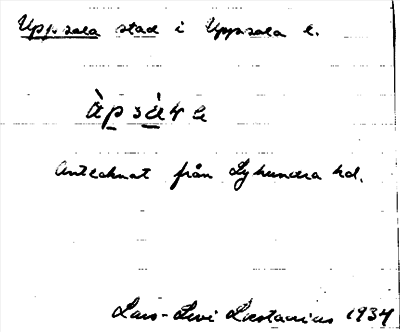 Uppsala stad i Uppsala l.
àpsàʟa
Antecknat från Lyhundra hd.
Lars-Levi Læstadius 1934